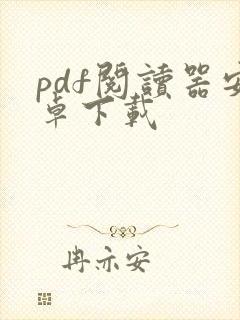 pdf閱讀器安
卓下載
冉亦安